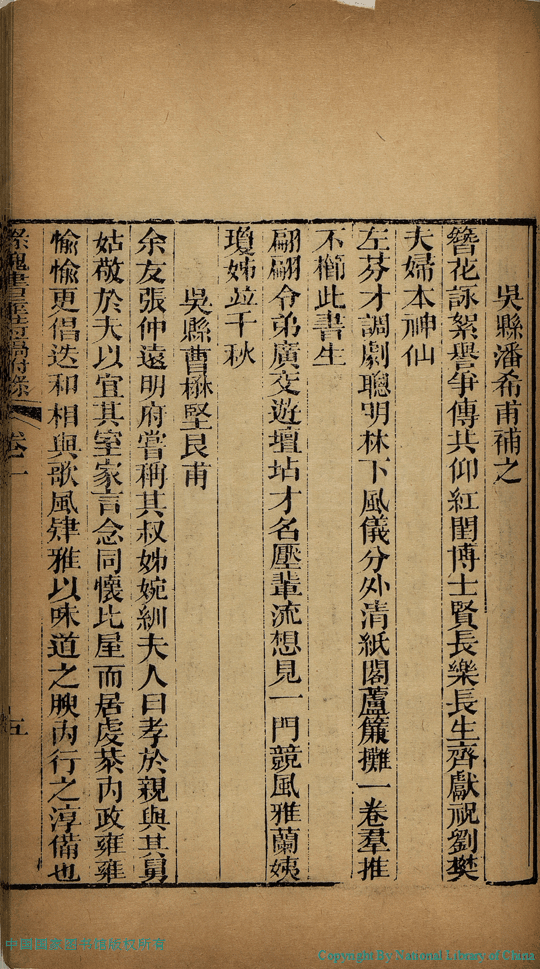 吳縣潘希甫補之
簪花詠絮譽爭傳共仰紅閨博士賢長樂長生齊獻祝劉樊
夫婦本神仙
左芬才調劇聰明林下風儀分外清紙閣蘆簾攤一卷羣推
不櫛此書生
翩翩令弟廣交遊壇坫才名壓輩流想見一門競風雅蘭姨
瓊姊竝千秋
吳縣曹楙堅艮甫
余友張仲遠明府嘗稱其叔姊婉紃夫人曰孝於親與其舅
姑敬於夫以宜其室家言念同懷比屋而居處恭內政雍雍
愉愉更倡迭和相與歌風肄雅以味道之腴內行之淳備也
書屋 稿附錄 卷一 五
中國國家
Copyright By National Library of China